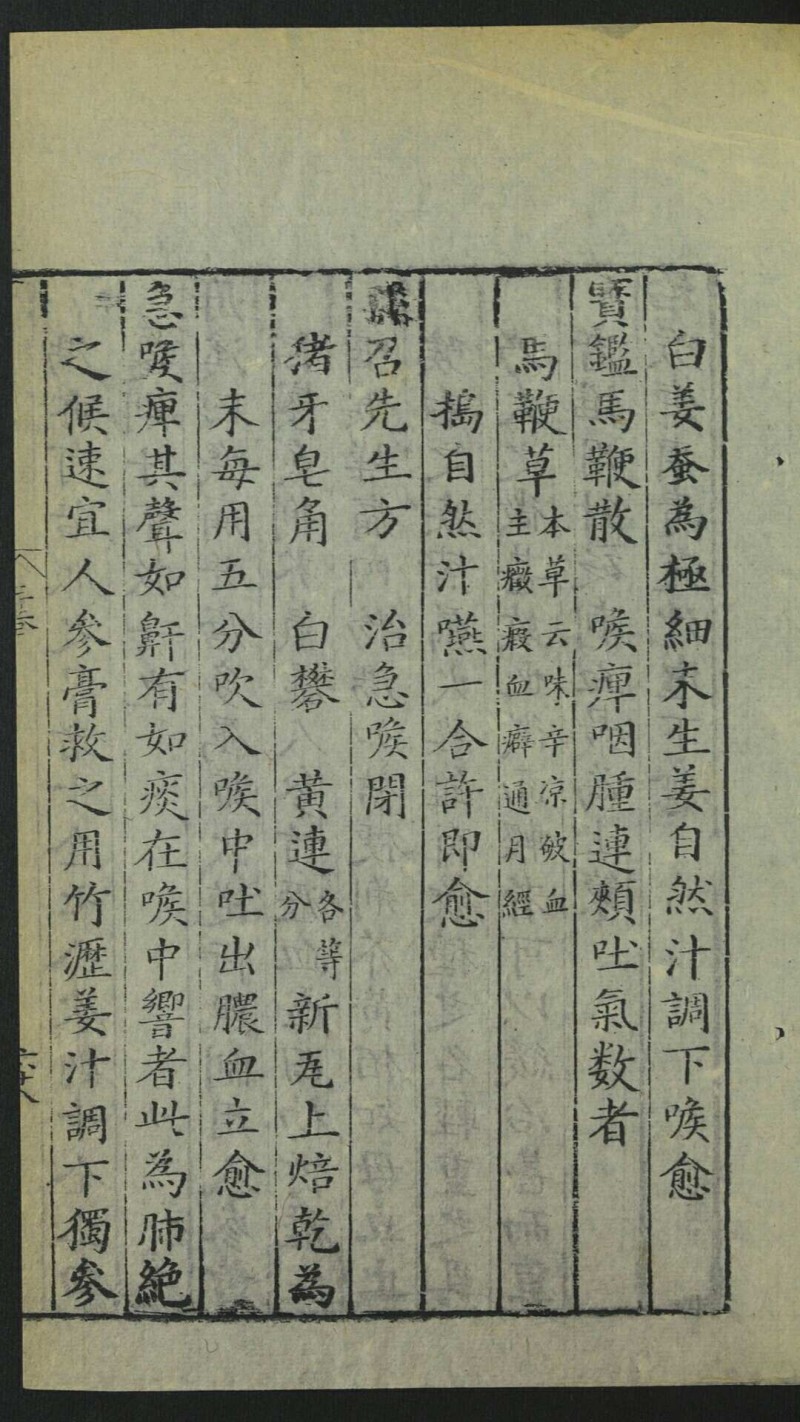 白姜蚕為極細末生姜自然汁調下喉愈
寳鑑馬鞭散　喉痺咽腫連頰吐氣数者
馬鞭草本草云味辛凉破血主癥瘕血癖通月經
搗自然汁嚥一合許即愈
召先生方　治急喉閉
猪牙皂角　白礬　黄連各等分新瓦上焙乾為
末每用五分吹入喉中吐出膿血立愈
急喉痺其聲如鼾有如痰在喉中響者此為肺絶
之候速宜人參膏救之用竹瀝姜汁調下獨參